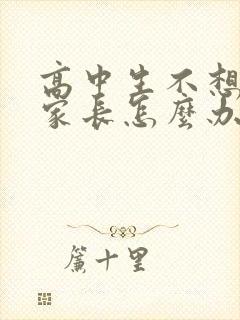 高中生不想
家长怎麼办
簾十里